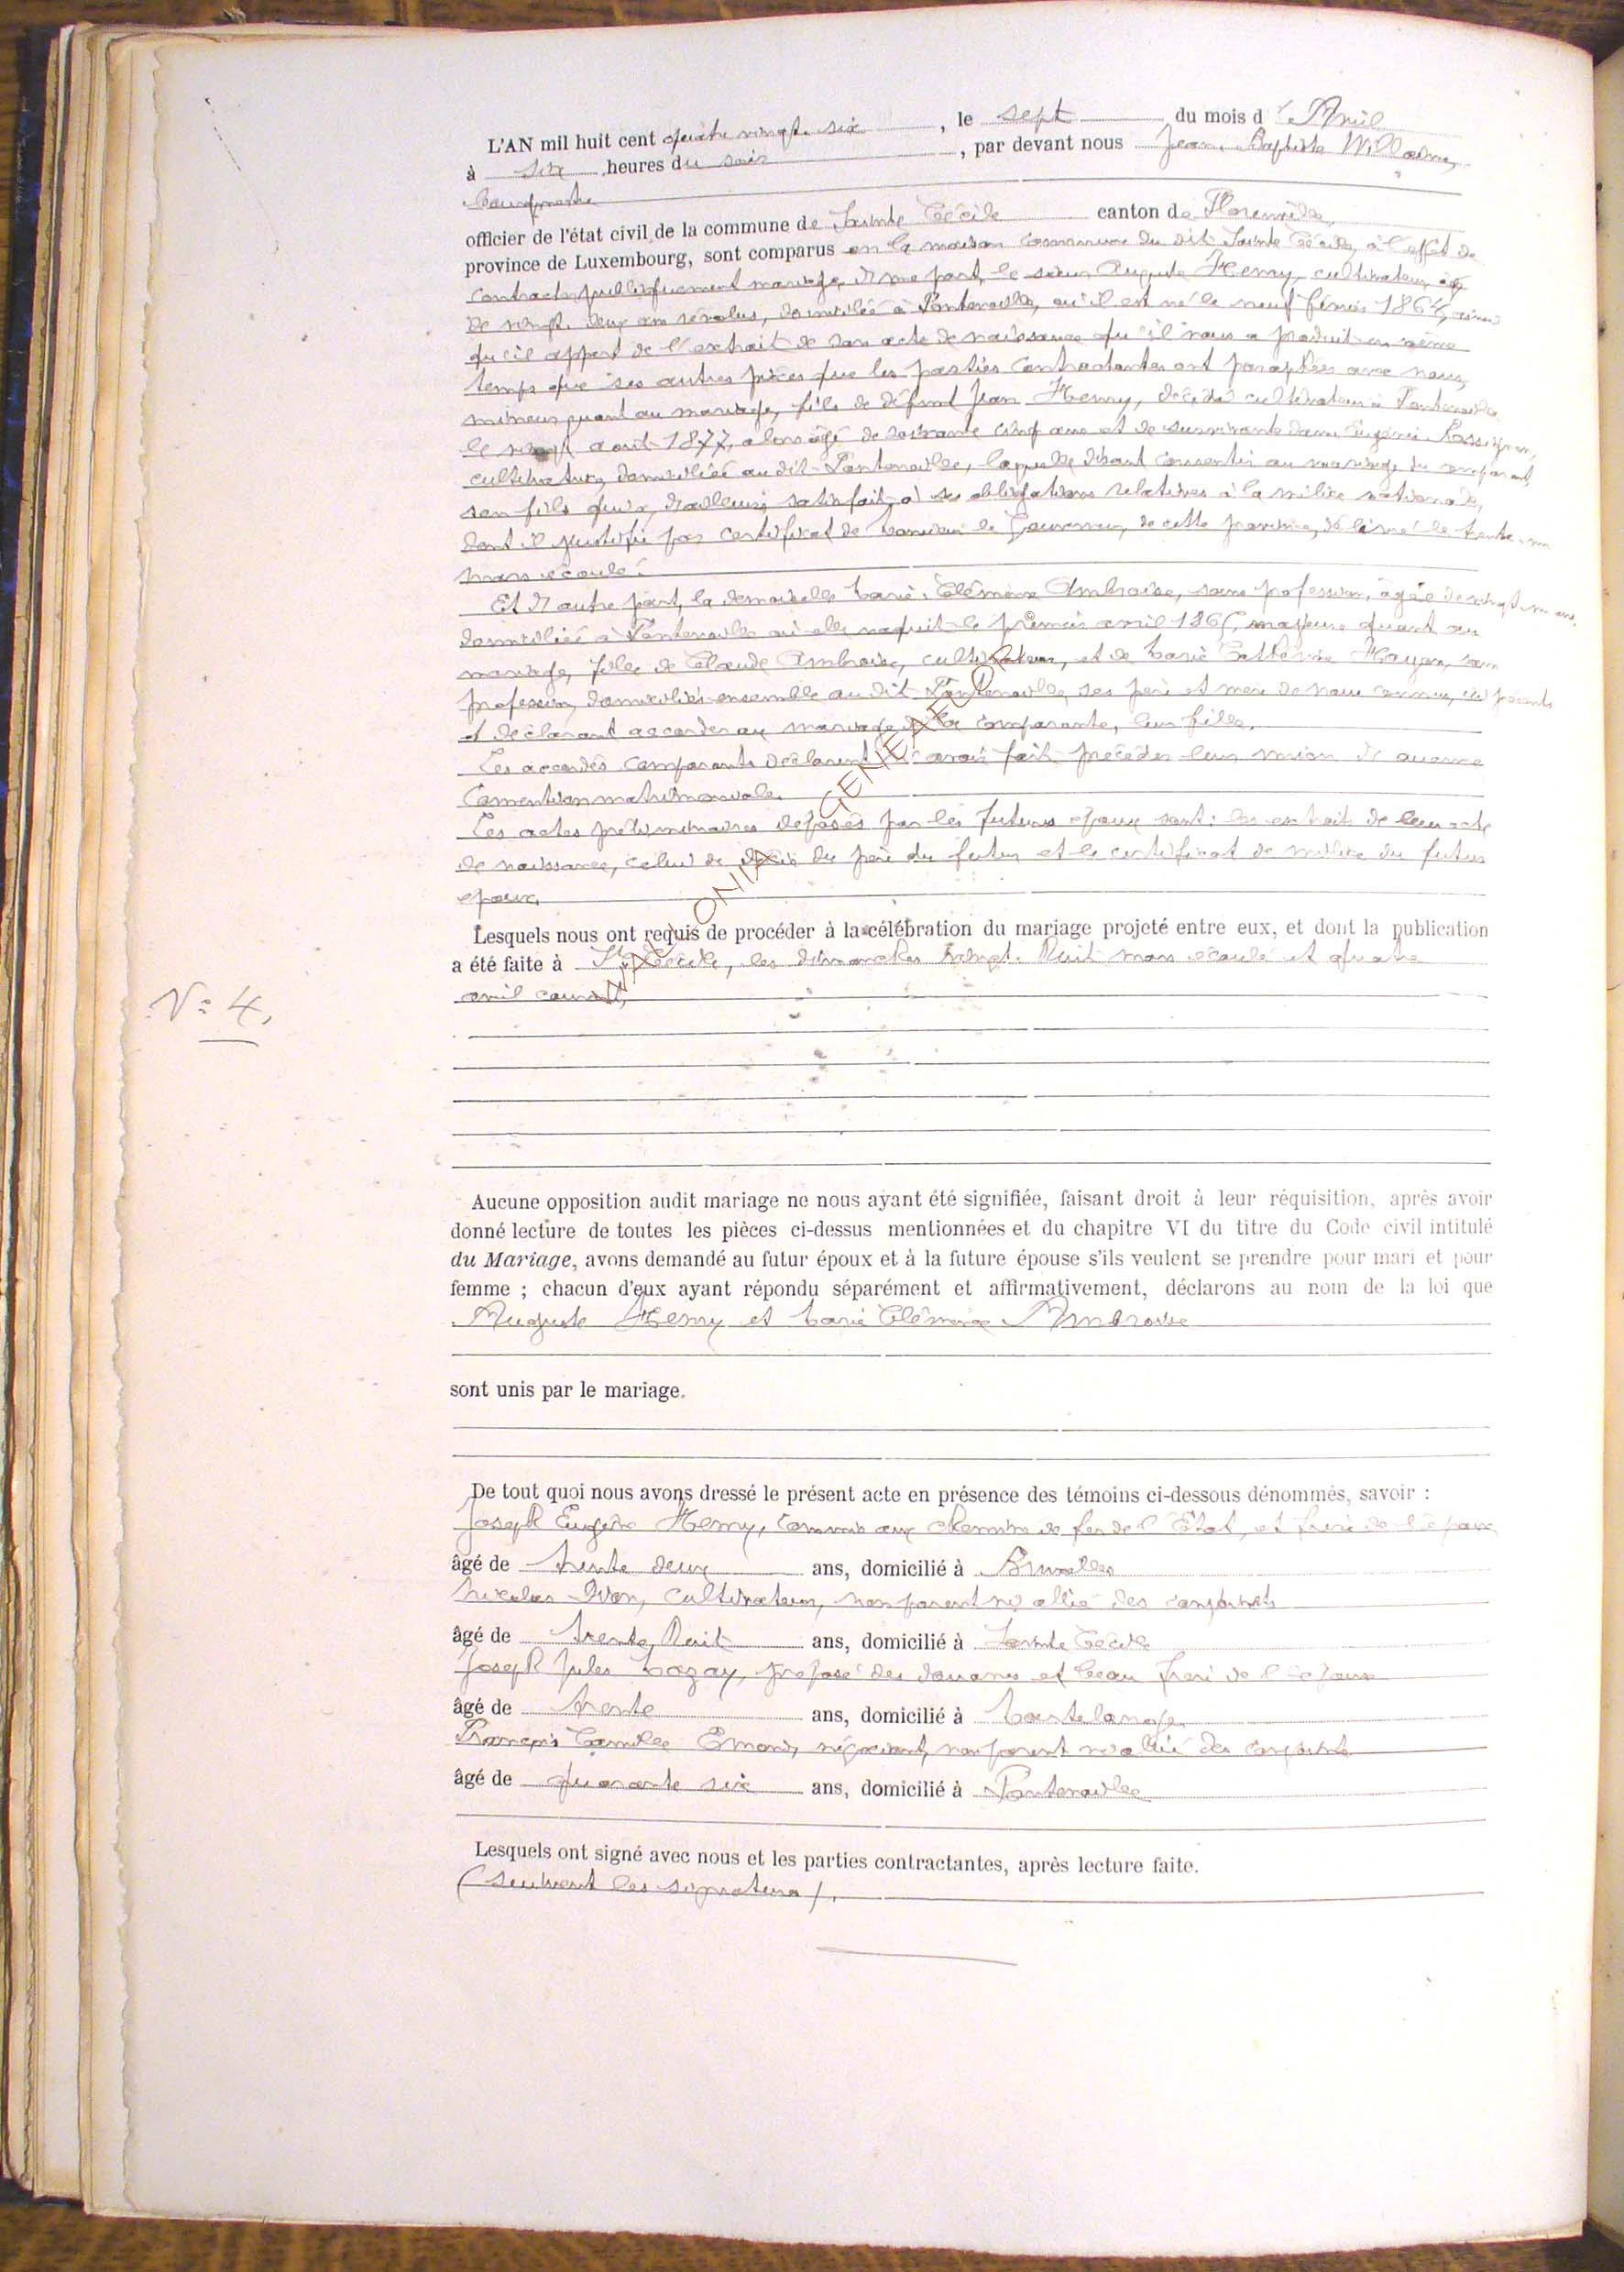 L'AN mil huit cent quatre vingt. six, le sept du mois d'Avril
à six heures du soir, par devant nous Jean. Baptiste Willaime,
bourgmestre
officier de l'état civil de la commune de Sainte Cécile canton de Florenville,
province de Luxembourg, sont comparus en la maison commune du dit Sainte Cécile, à l'effet de
contracter publiquement mariage, d'une part, le sieur Auguste Henry, cultivateur, âgé
de vingt. deux ans révolus, domicilié à Fontenoille, où il est né le neuf février 1864, ainsi
qu'il appert de l'extrait de son acte de naissance qu'il nous a produit en même
temps que ses autres pièces que les parties contractantes ont paraphées avec nous,
mineur quant au mariage, fils de défunt Jean Henry, décédé cultivateur à Fontenoille
le août 1877, alors âgé de soixante cinq ans et de survivante dame Eugénie
cultivatrice, domiciliée au dit Fontenoille, laquelle disant consentir au mariage du comparant,
son fils qui a, d'ailleurs, satisfait à ses obligations relatives à la milice nationale,
dont il justifie par certificat de Monsieur le Gouverneur, de cette province, délivré le trente. un
mars écoulé.
Et d'autre part, la demoiselle Marie. Clémence Ambroise, sans profession, âgée de vingt un ans,
domiciliée à Fontenoille où elle naquit le premier avril 1865, majeure quant au
mariage, fille de Claude Ambroise, cultivateur, et de Marie Catherine Hayon, sans
profession, domiciliés ensemble au dit Fontenoille, ses père et mère de nous connus, ici présents
et déclarant accorder au mariage de la comparante, leur fille.
Les accordés comparants déclarent n'avoir fait précéder leur union d'aucune
Convention matrimoniale.
Les actes préliminaires déposés par les futurs époux sont: les extraits de leur acte
de naissance, celui de décès du père du futur et le certificat de milice du futur
époux.
Lesquels nous ont requis de procéder à la célébration du mariage projeté entre eux, et dont la publication
a été faite à Ste Cécile, les dimanches vingt. huit mars écoulé et quatre
avril courant,
N° 4.
Aucune opposition audit mariage ne nous ayant été signifiée, faisant droit à leur réquisition, après avoir
donné lecture de toutes les pièces ci-dessus mentionnées et du chapitre VI du titre du Code civil intitulé
du Mariage, avons demandé au futur époux et à la future épouse s'ils veulent se prendre pour mari et pour
femme ; chacun d'eux ayant répondu séparément et affirmativement, déclarons au nom de la loi que
Auguste Henry et Marie Clémence Ambroise
sont unis par le mariage.
De tout quoi nous avons dressé le présent acte en présence des témoins ci-dessous dénommés, savoir :
Joseph Eugène Henry, commis aux chemins de fer de l'Etat, et frère de l'époux
âgé de trente deux ans, domicilié à Bruxelles
Nicolas, cultivateur, non parent ni allié des conjoints
âgé de trente, huit ans, domicilié à Sainte Cécile
Joseph Jules Mazay, préposé des douanes et beau frère de l'époux
âgé de trente ans, domicilié à Martelange
François Camille Emond, négociant, non parent ni allié des conjoints
âgé de quarante six ans, domicilié à Fontenoille
Lesquels ont signé avec nous et les parties contractantes, après lecture faite.
(suivent les signatures).